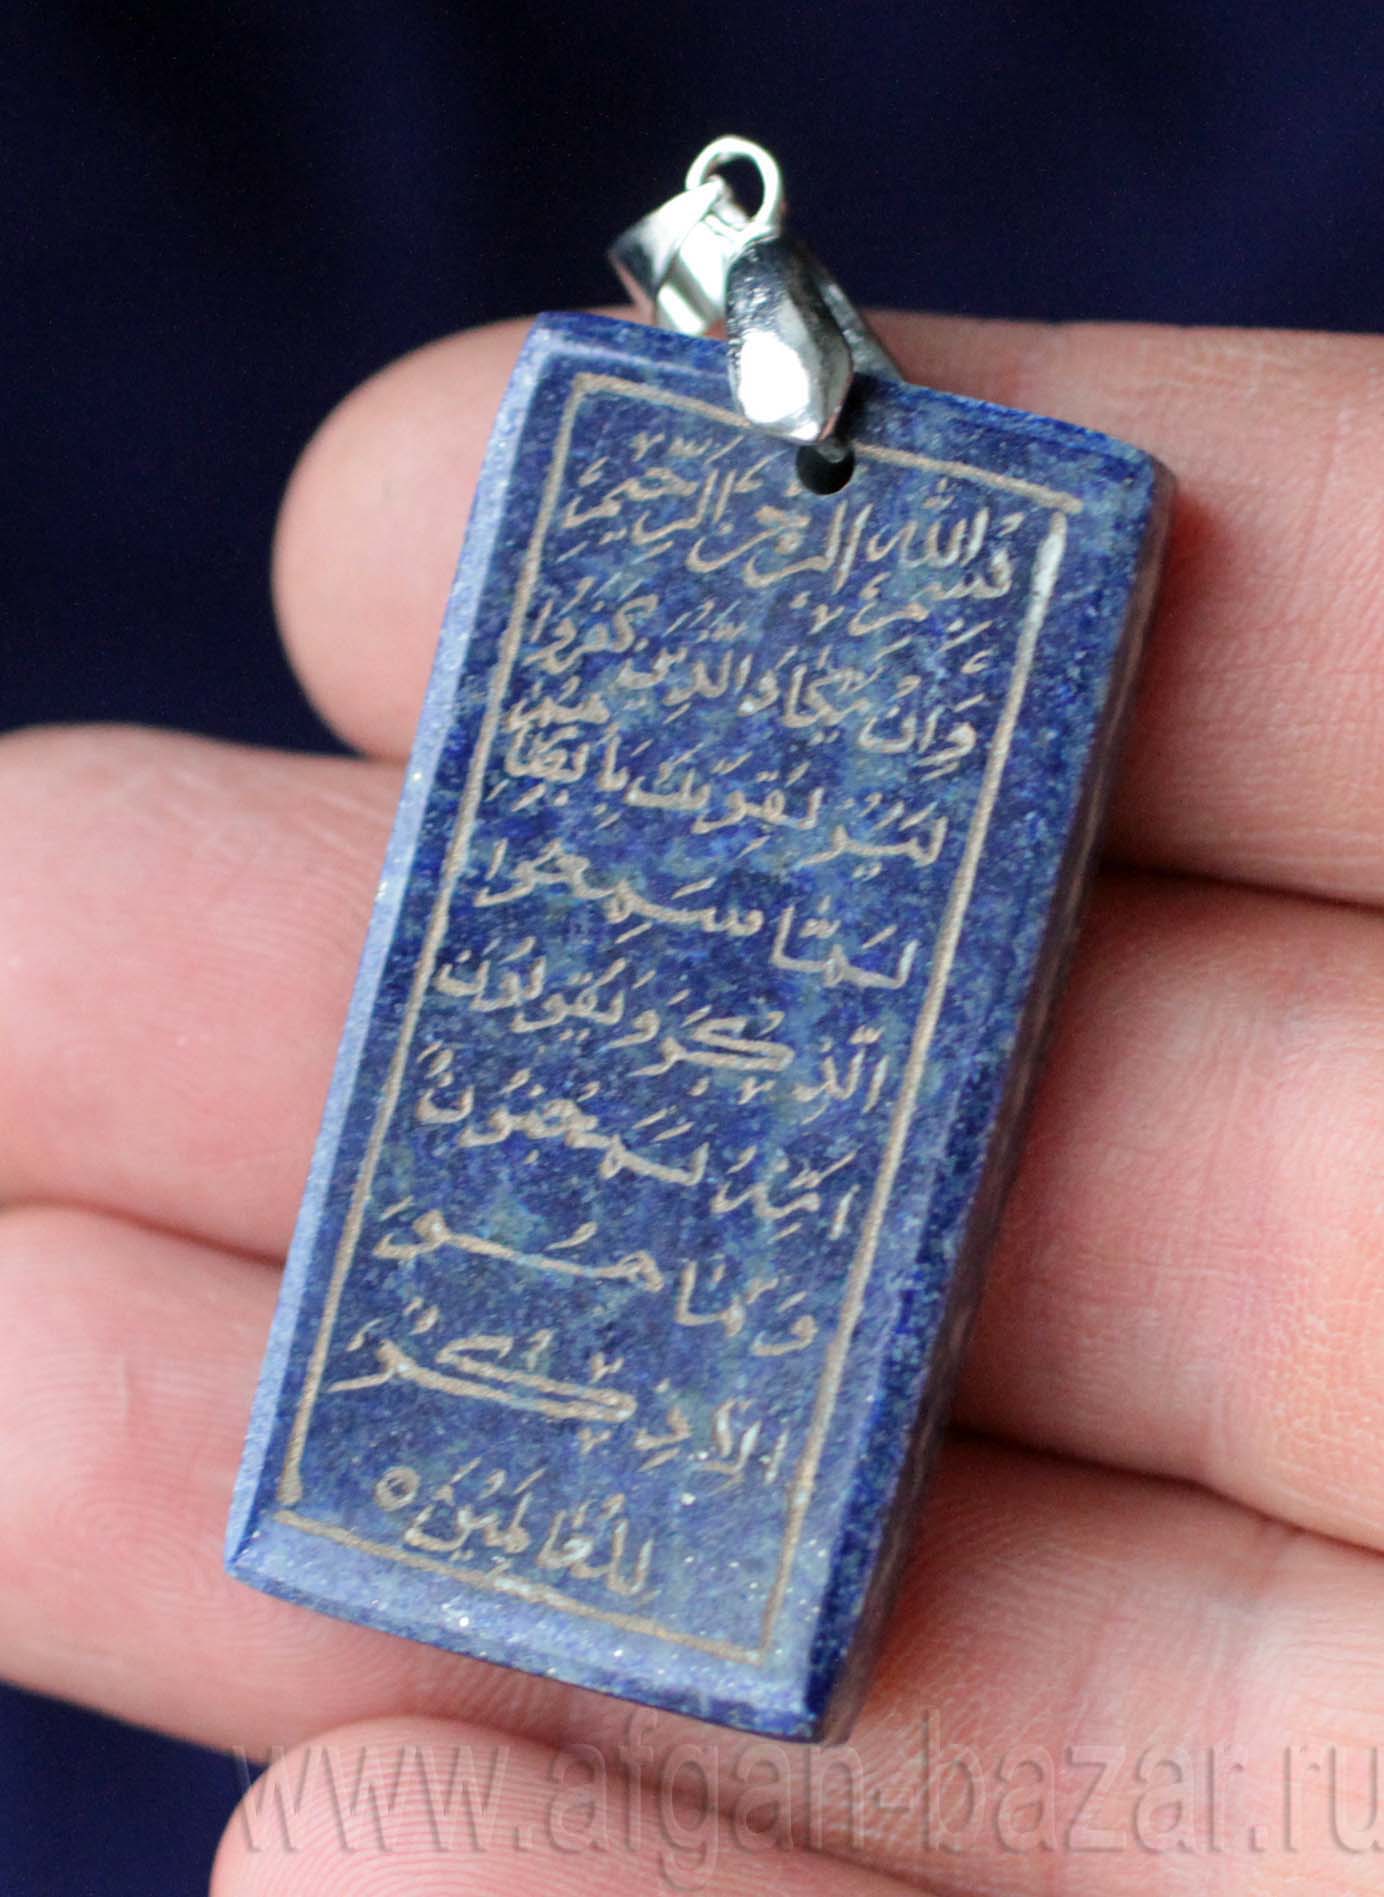 بِسْمِ اللّٰهِ الرَّحْمٰنِ الرَّحِيْمِ
وَاِنْ يَّكَادُ الَّذِيْنَ كَفَرُوْا
لَيُزْلِقُوْنَكَ بِاَبْصَارِهِمْ
لَمَّا سَمِعُوا
الذِّكْرَ وَيَقُولُونَ
اِنَّهُ لَمَجْنُونٌ
وَمَا هُوَ
اِلَّا ذِكْرٌ
لِلْعَالَمِيْنَ
www.afgan-bazar.ru